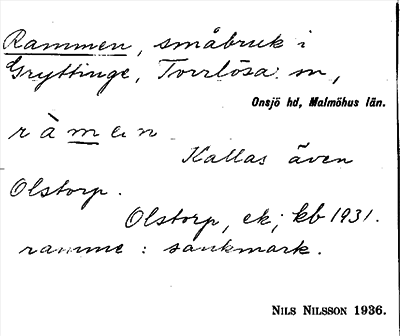 Rammen, småbruk i
Gryttinge, Torrlösa sn,
Onsjö hd, Malmöhus län.
ràmen
Kallas även
Olstorp.
Olstorp, ek; kb 1931.
ramme : sankmark.
NILS NILSSON 1936.